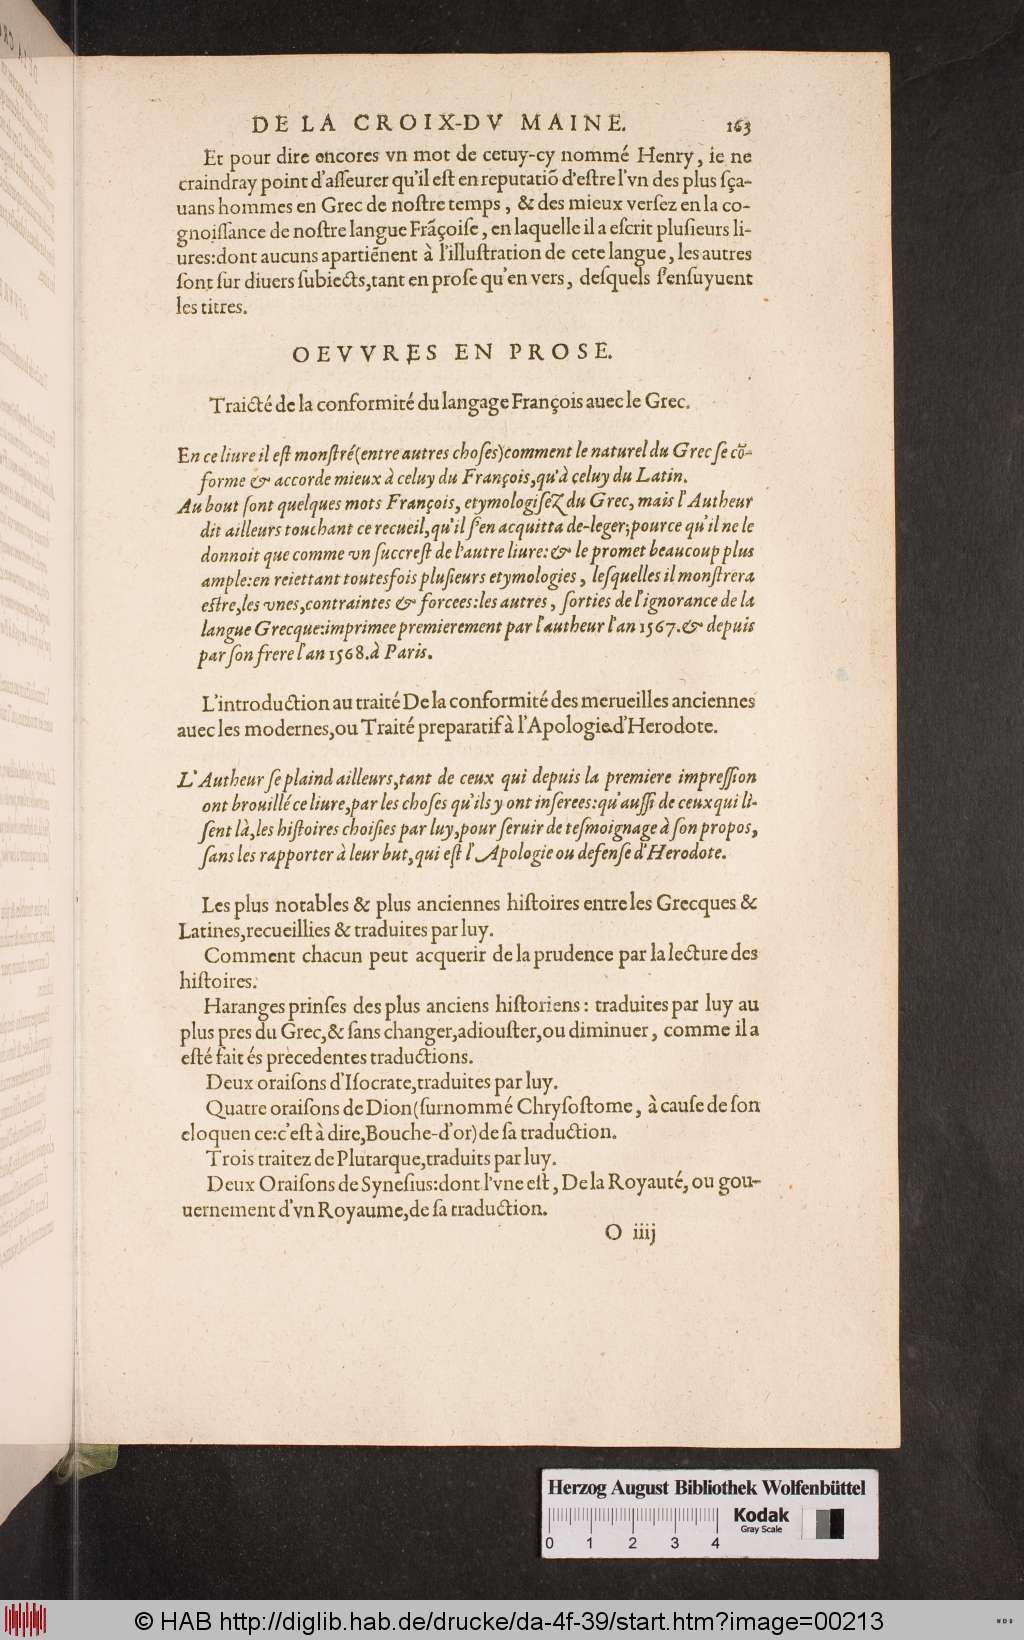 DE LA CROIX-DV MAINE. 163
Et pour dire encores vn mot de cetuy-cy nommé Henry, ie ne
craindray point d'aſſeurer qu'il eſt en reputatiõ d'eſtre l'vn des plus ſça-
uans hommes en Grec de noſtre temps, & des mieux verſez en la co-
gnoiſſance de noſtre langue Frãçoiſe, en laquelle il a eſcrit pluſieurs li-
ures: dont aucuns apartiẽnent à l'illuſtration de cete langue, les autres
ſont ſur diuers ſubiects, tant en proſe qu'en vers, deſquels ſ'enſuyuent
les titres.
OEVVRES EN PROSE.
Traicté de la conformité du langage François auec le Grec.
En ce liure il eſt monſtré (entre autres choſes) comment le naturel du Grec ſe cõ-
forme & accorde mieux à celuy du François, qu'à celuy du Latin.
Au bout ſont quelques mots François, etymologiſez du Grec, mais l'Autheur
dit ailleurs touchant ce recueil, qu'il ſ'en acquitta de-leger, pource qu'il ne le
donnoit que comme vn ſuccreſt de l'autre liure: & le promet beaucoup plus
ample: en reiettant toutesfois pluſieurs etymologies, leſquelles il monſtrera
eſtre, les vnes, contraintes & forcees: les autres, ſorties de l'ignorance de la
langue Grecque: imprimee premierement par l'autheur l'an 1567. & depuis
par ſon frere l'an 1568. à Paris.
L'introduction au traité De la conformité des merueilles anciennes
auec les modernes, ou Traité preparatif à l'Apologie d'Herodote.
L'Autheur ſe plaind ailleurs, tant de ceux qui depuis la premiere impreſſion
ont brouillé ce liure, par les choſes qu'ils y ont inſerees: qu'auſſi de ceux qui li-
ſent là, les hiſtoires choiſies par luy, pour ſeruir de teſmoignage à ſon propos,
ſans les rapporter à leur but, qui eſt l'Apologie ou defenſe d'Herodote.
Les plus notables & plus anciennes hiſtoires entre les Grecques &
Latines, recueillies & traduites par luy.
Comment chacun peut acquerir de la prudence par la lecture des
hiſtoires.
Haranges prinſes des plus anciens hiſtoriens: traduites par luy au
plus pres du Grec, & ſans changer, adiouſter, ou diminuer, comme il a
eſté fait és precedentes traductions.
Deux oraiſons d'Iſocrate, traduites par luy.
Quatre oraiſons de Dion (ſurnommé Chryſoſtome, à cauſe de ſon
eloquen ce: c'eſt à dire, Bouche-d'or) de ſa traduction.
Trois traitez de Plutarque, traduits par luy.
Deux Oraiſons de Syneſius: dont l'vne eſt, De la Royauté, ou gou-
uernement d'vn Royaume, de ſa traduction.
O iiij
Herzog August Bibliothek Wolfenbüttel
Kodak
Gray Scale
0 1 2 3 4
© HAB http://diglib.hab.de/drucke/da-4f-39/start.htm?image=00213